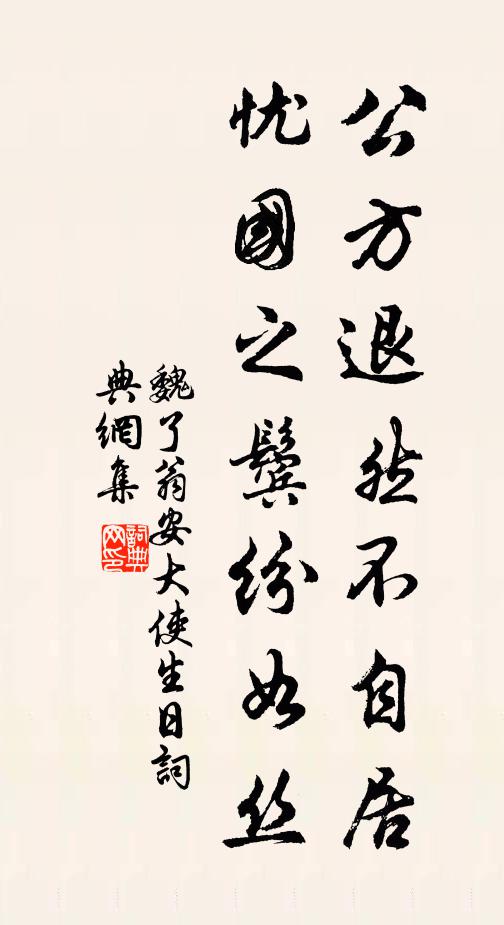 公方退然不自居
忧國之鬓纷如丝
魏了翁安大使生日詞
典網集
詞典
网印